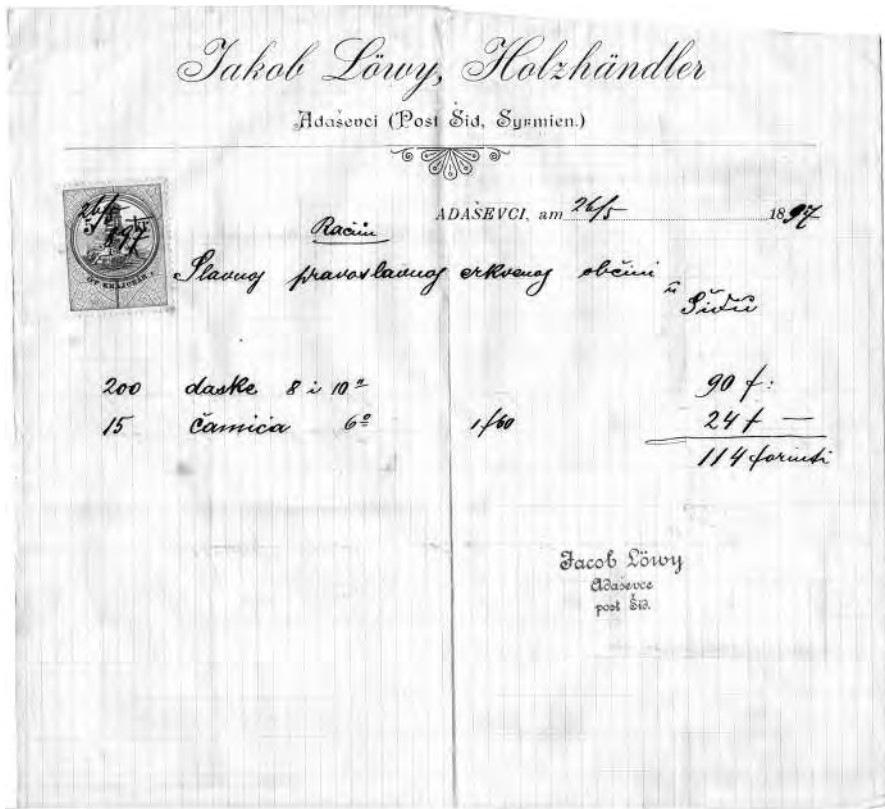 Jakob Löwy, Holzhändler
Adaševci (Post Šid, Syrmien.)
ADAŠEVCI, am 26/5 1897
26/5
897
ÖT KRAJCZÁR
Račun
Slavnoj pravoslavnoj crkvenoj občini
u Šidu
200 daske 8 i 10" 90 f:
15 čamića 6° 1f60 24 f —
114 forinti
Jacob Löwy
Adaševce
post Šid.